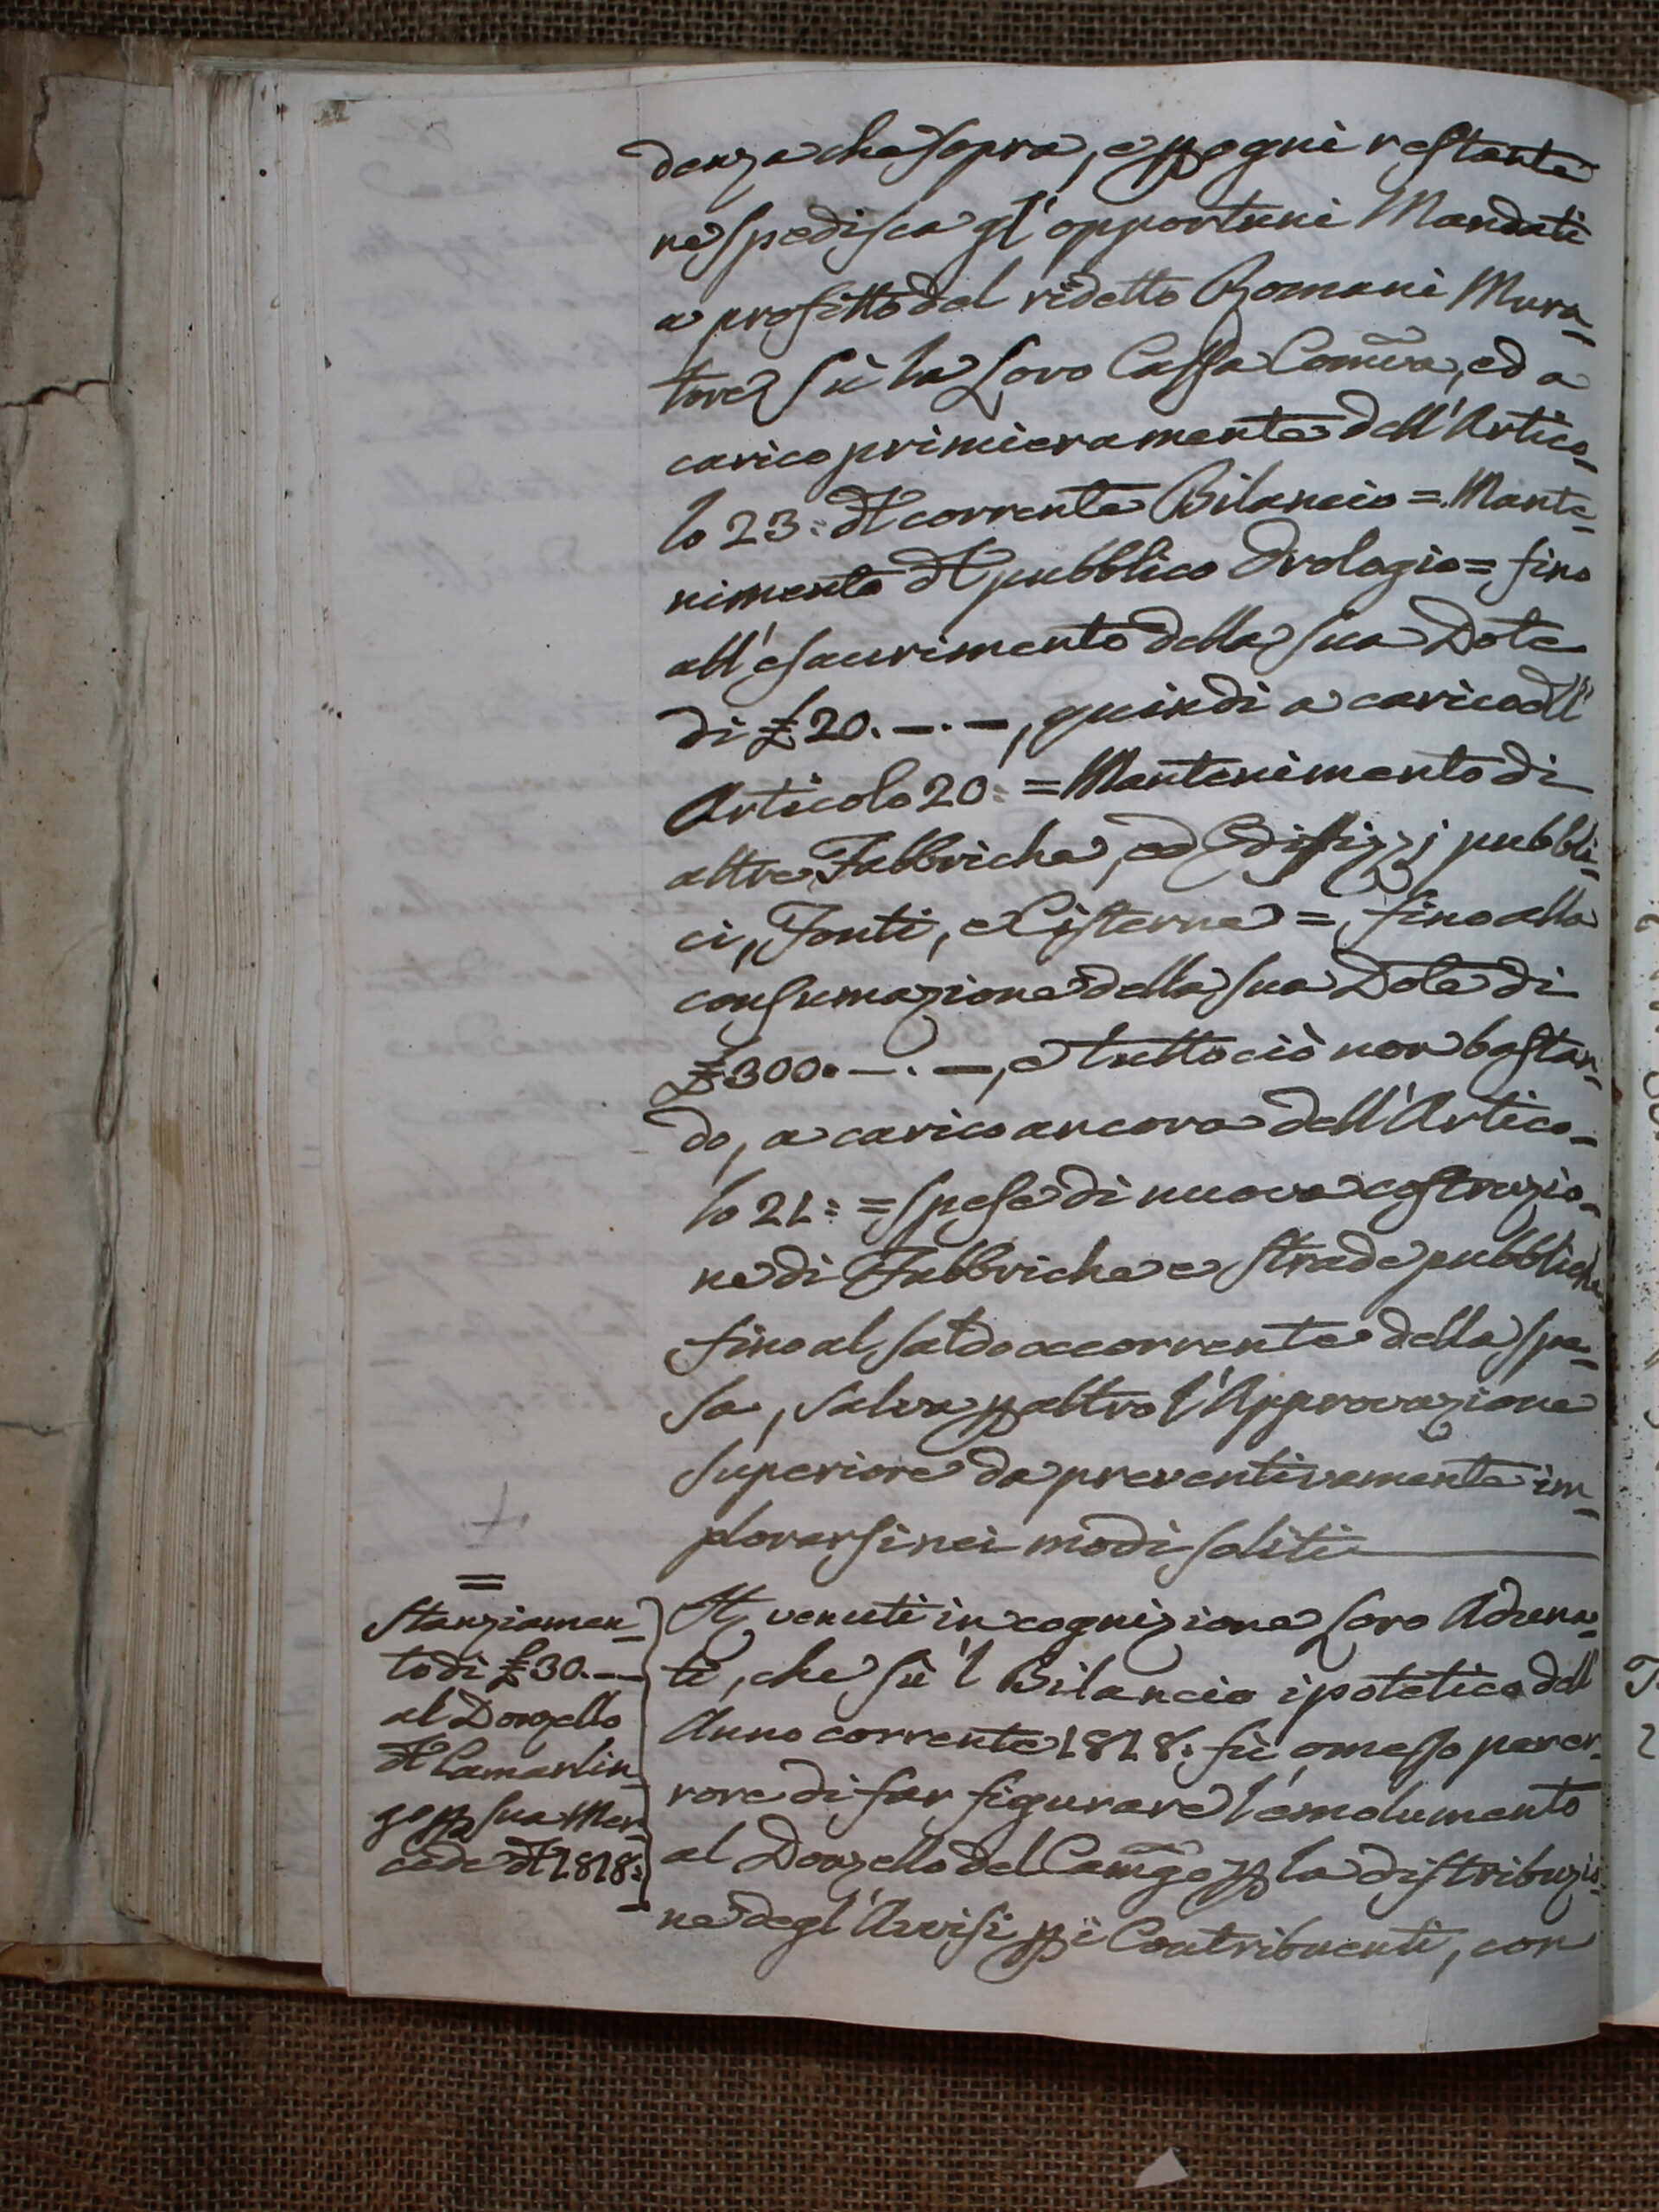 denza che sopra, e p ogni restante
ne spedisca gl' opportuni Mandati
a profitto del ridetto Romani Mura-
tore sù la Loro Cassa Comva, ed a
carico primieramente dell' Artico-
lo 23: dl corrente Bilancio = Mante-
nimento dl pubblico Orologio = fino
all' esaurimento della sua Dote
di £ 20. —. —, quindi a carico dll'
Articolo 20: = Mantenimento di
altre Fabbriche, ed Edifizzj pubbli-
ci, Fonti, e Cisterne =, fino alla
consumazione della sua Dote di
£ 300. —. —, e tutto ciò non bastan-
do, a carico ancora dell' Artico-
lo 21: = spese di nuova costruzio-
ne di Fabbriche e Strade pubbliche
fino al saldo occorrente della spe-
sa, salva p altro l' Approvazione
superiore da preventivamente im-
plorarsi nei modi soliti
=
Stanziamen-
to di £ 30. —
al Donzello
dl Camarlin-
go p sua Mer-
cede dl 1818:
It venuti in cognizione Loro Aduna-
ti, che sù 'l Bilancio ipotetico dell
Anno corrente 1818: fù omesso per er-
rore di far figurare l' emolumento
al Donzello del Camgo p la distribuzio-
ne degl' Avvisi p i Contribuenti, con